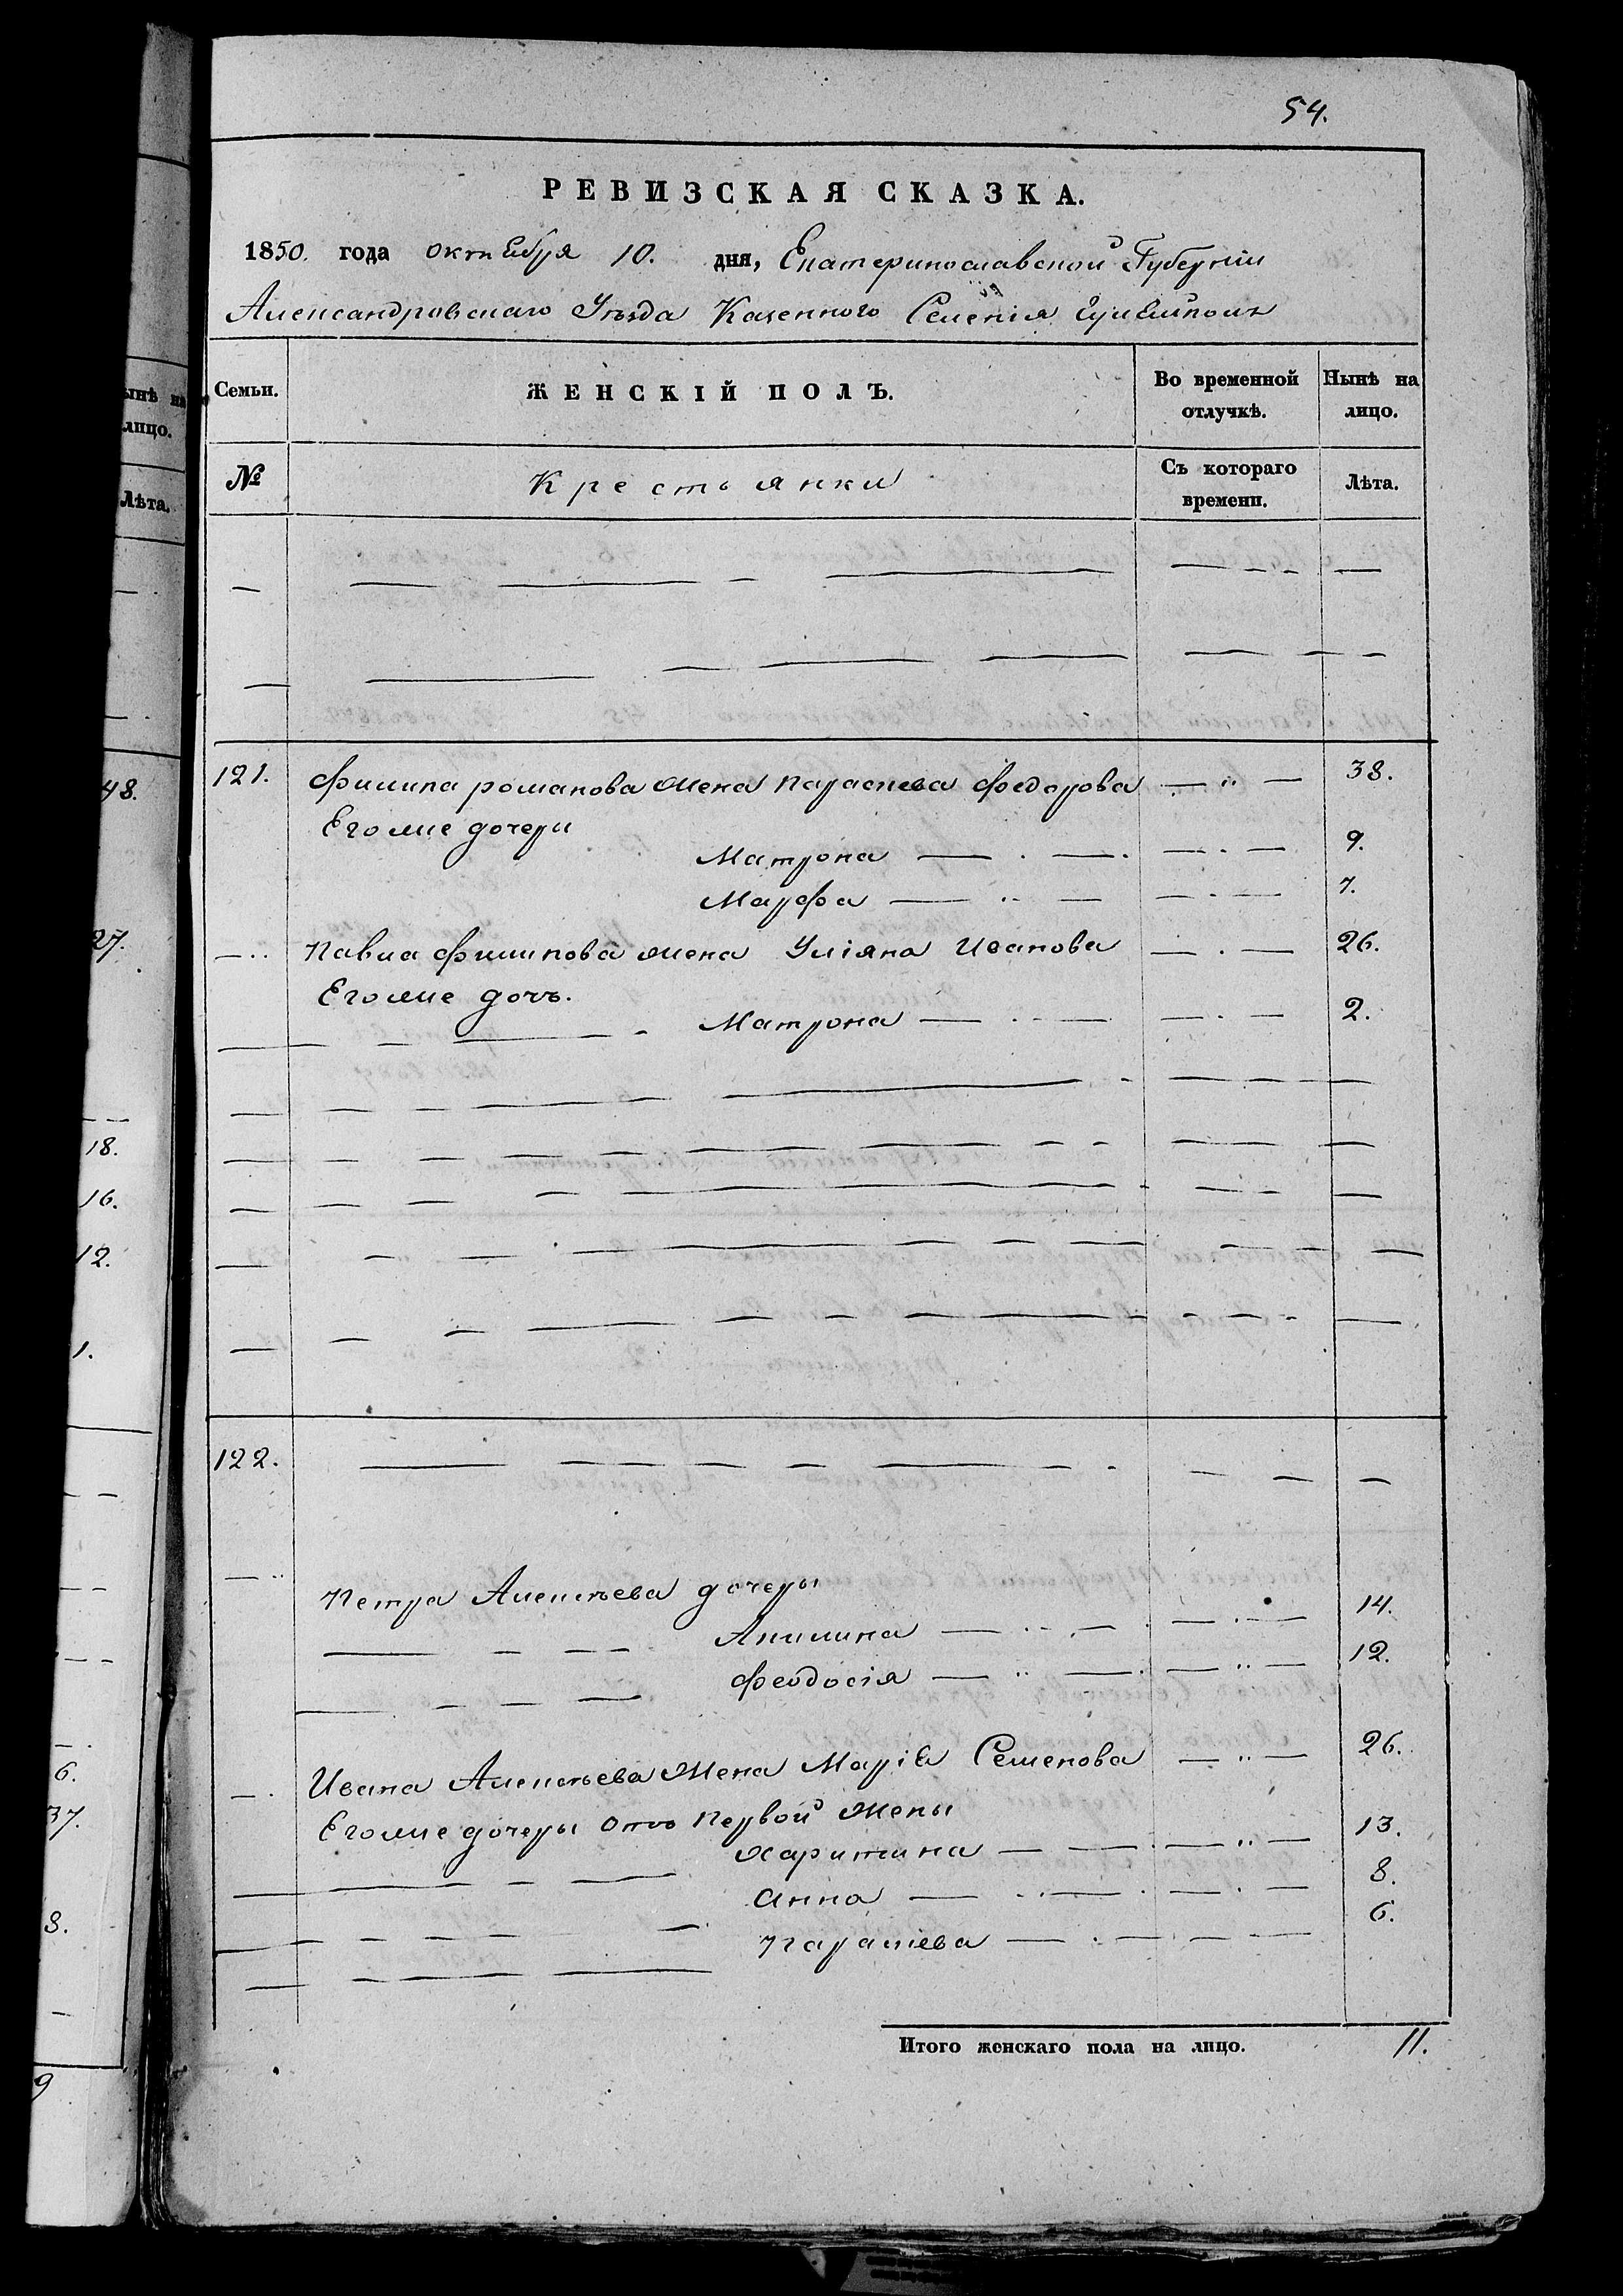 54.
РЕВИЗСКАЯ СКАЗКА.
1850. года октября 10. дня, Екатеринославской Губерніи
Александровскаго Уѣзда Казенного Селенія Гуляйполя
Семьи. ЖЕНСКІЙ ПОЛЪ. Во временной отлучкѣ. Нынѣ на лицо.
№ Крестьянки Съ котораго времени. Лѣта.
121. Филипа романова жена параскева федорова 38.
Его же дочери
Матрона 9.
Марфа 7.
Павла филипова жена Уліяна Иванова 26.
Его же дочь.
Матрона 2.
122.
Петра Алексѣева дочеры
Акилина 14.
Феодосія 12.
Ивана Алексѣева жена Марія Семенова 26.
Его же дочеры отъ Первой жены
Харитина 13.
Анна 8.
Параскева 6.
Итого женскаго пола на лицо. 11.
ынѣ на
лицо.
Лѣта.
48.
27.
18.
16.
12.
1.
6.
37.
8.
9